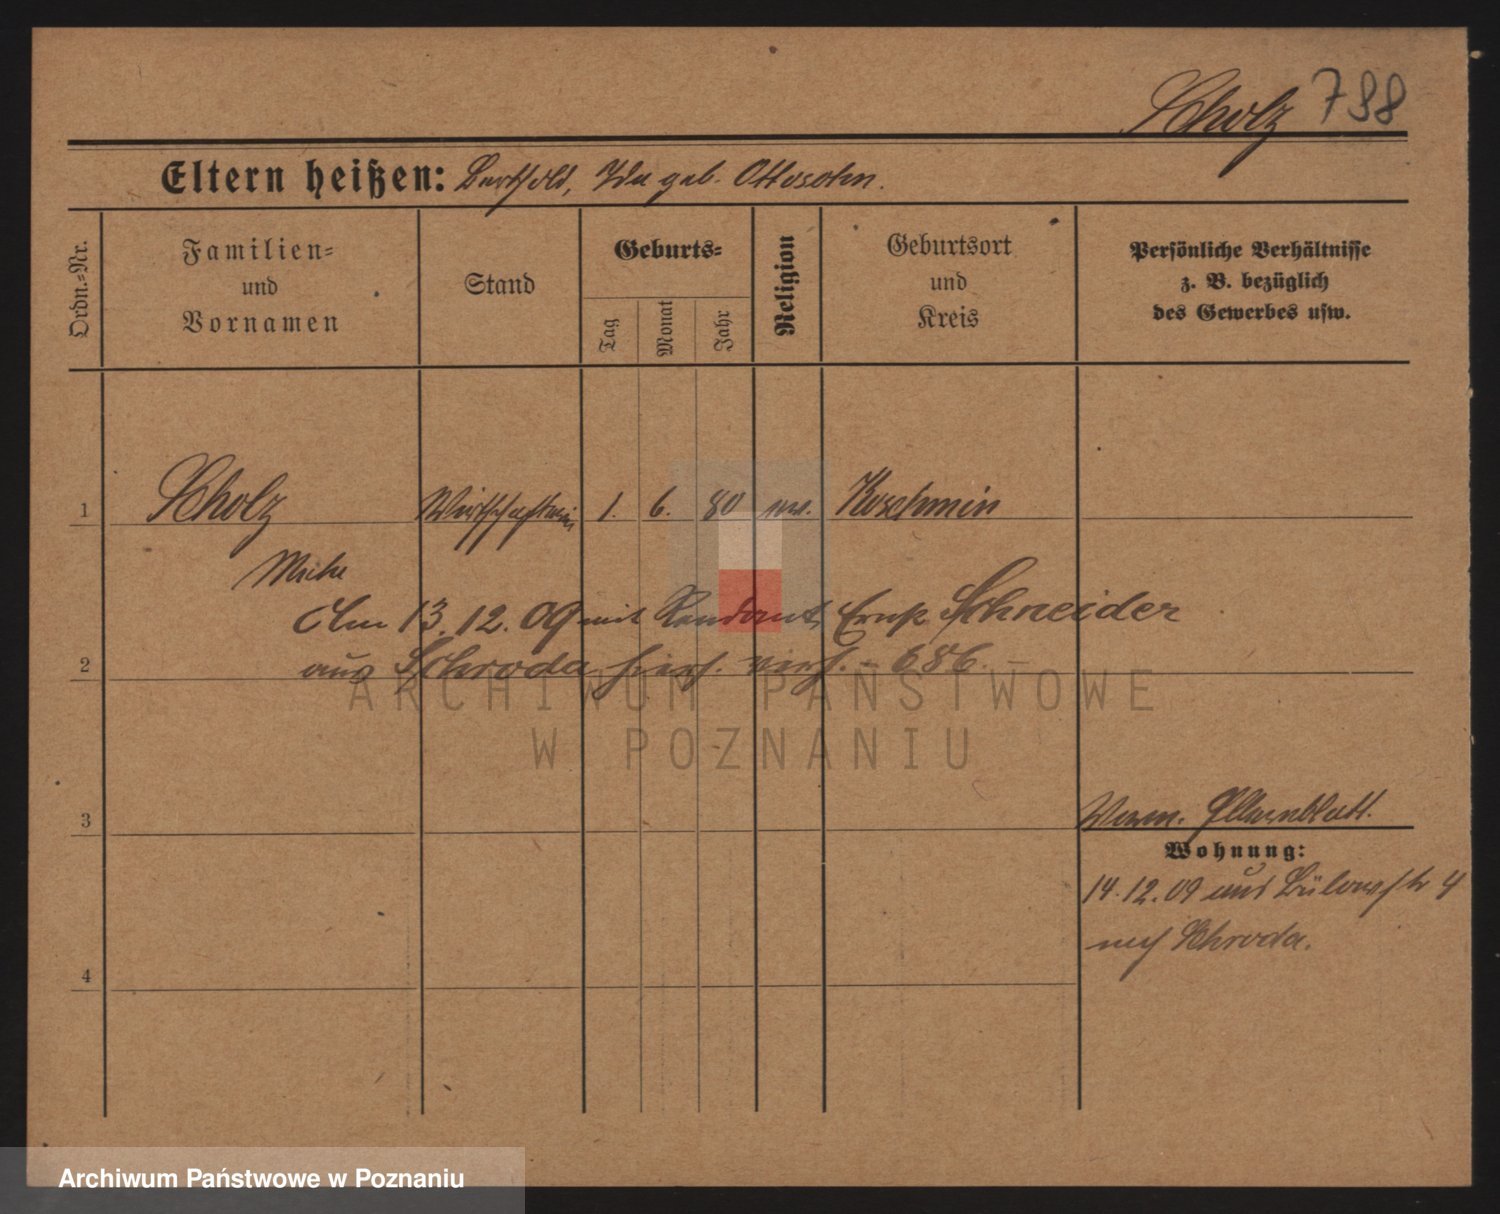 Scholz 788
Eltern heißen: Berthold, Ida geb. Ottosohn.
Ordn.-Nr.
Familien-
und
Vornamen
Stand
Geburts-
Tag
Monat
Jahr
Religion
Geburtsort
und
Kreis
Persönliche Verhältnisse
z. B. bezüglich
des Gewerbes usw.
1 Scholz 1. 6. 80 ev. Koschmin
Am 13.12.09 mit Rendant Ernst Schneider
2 aus Schroda hiers. verh. – 686. –
ARCHIWUM PAŃSTWOWE
W POZNANIU
3
Wohnung:
14.12.09 aus Bülowstr 4
nach Schroda.
4
Archiwum Państwowe w Poznaniu